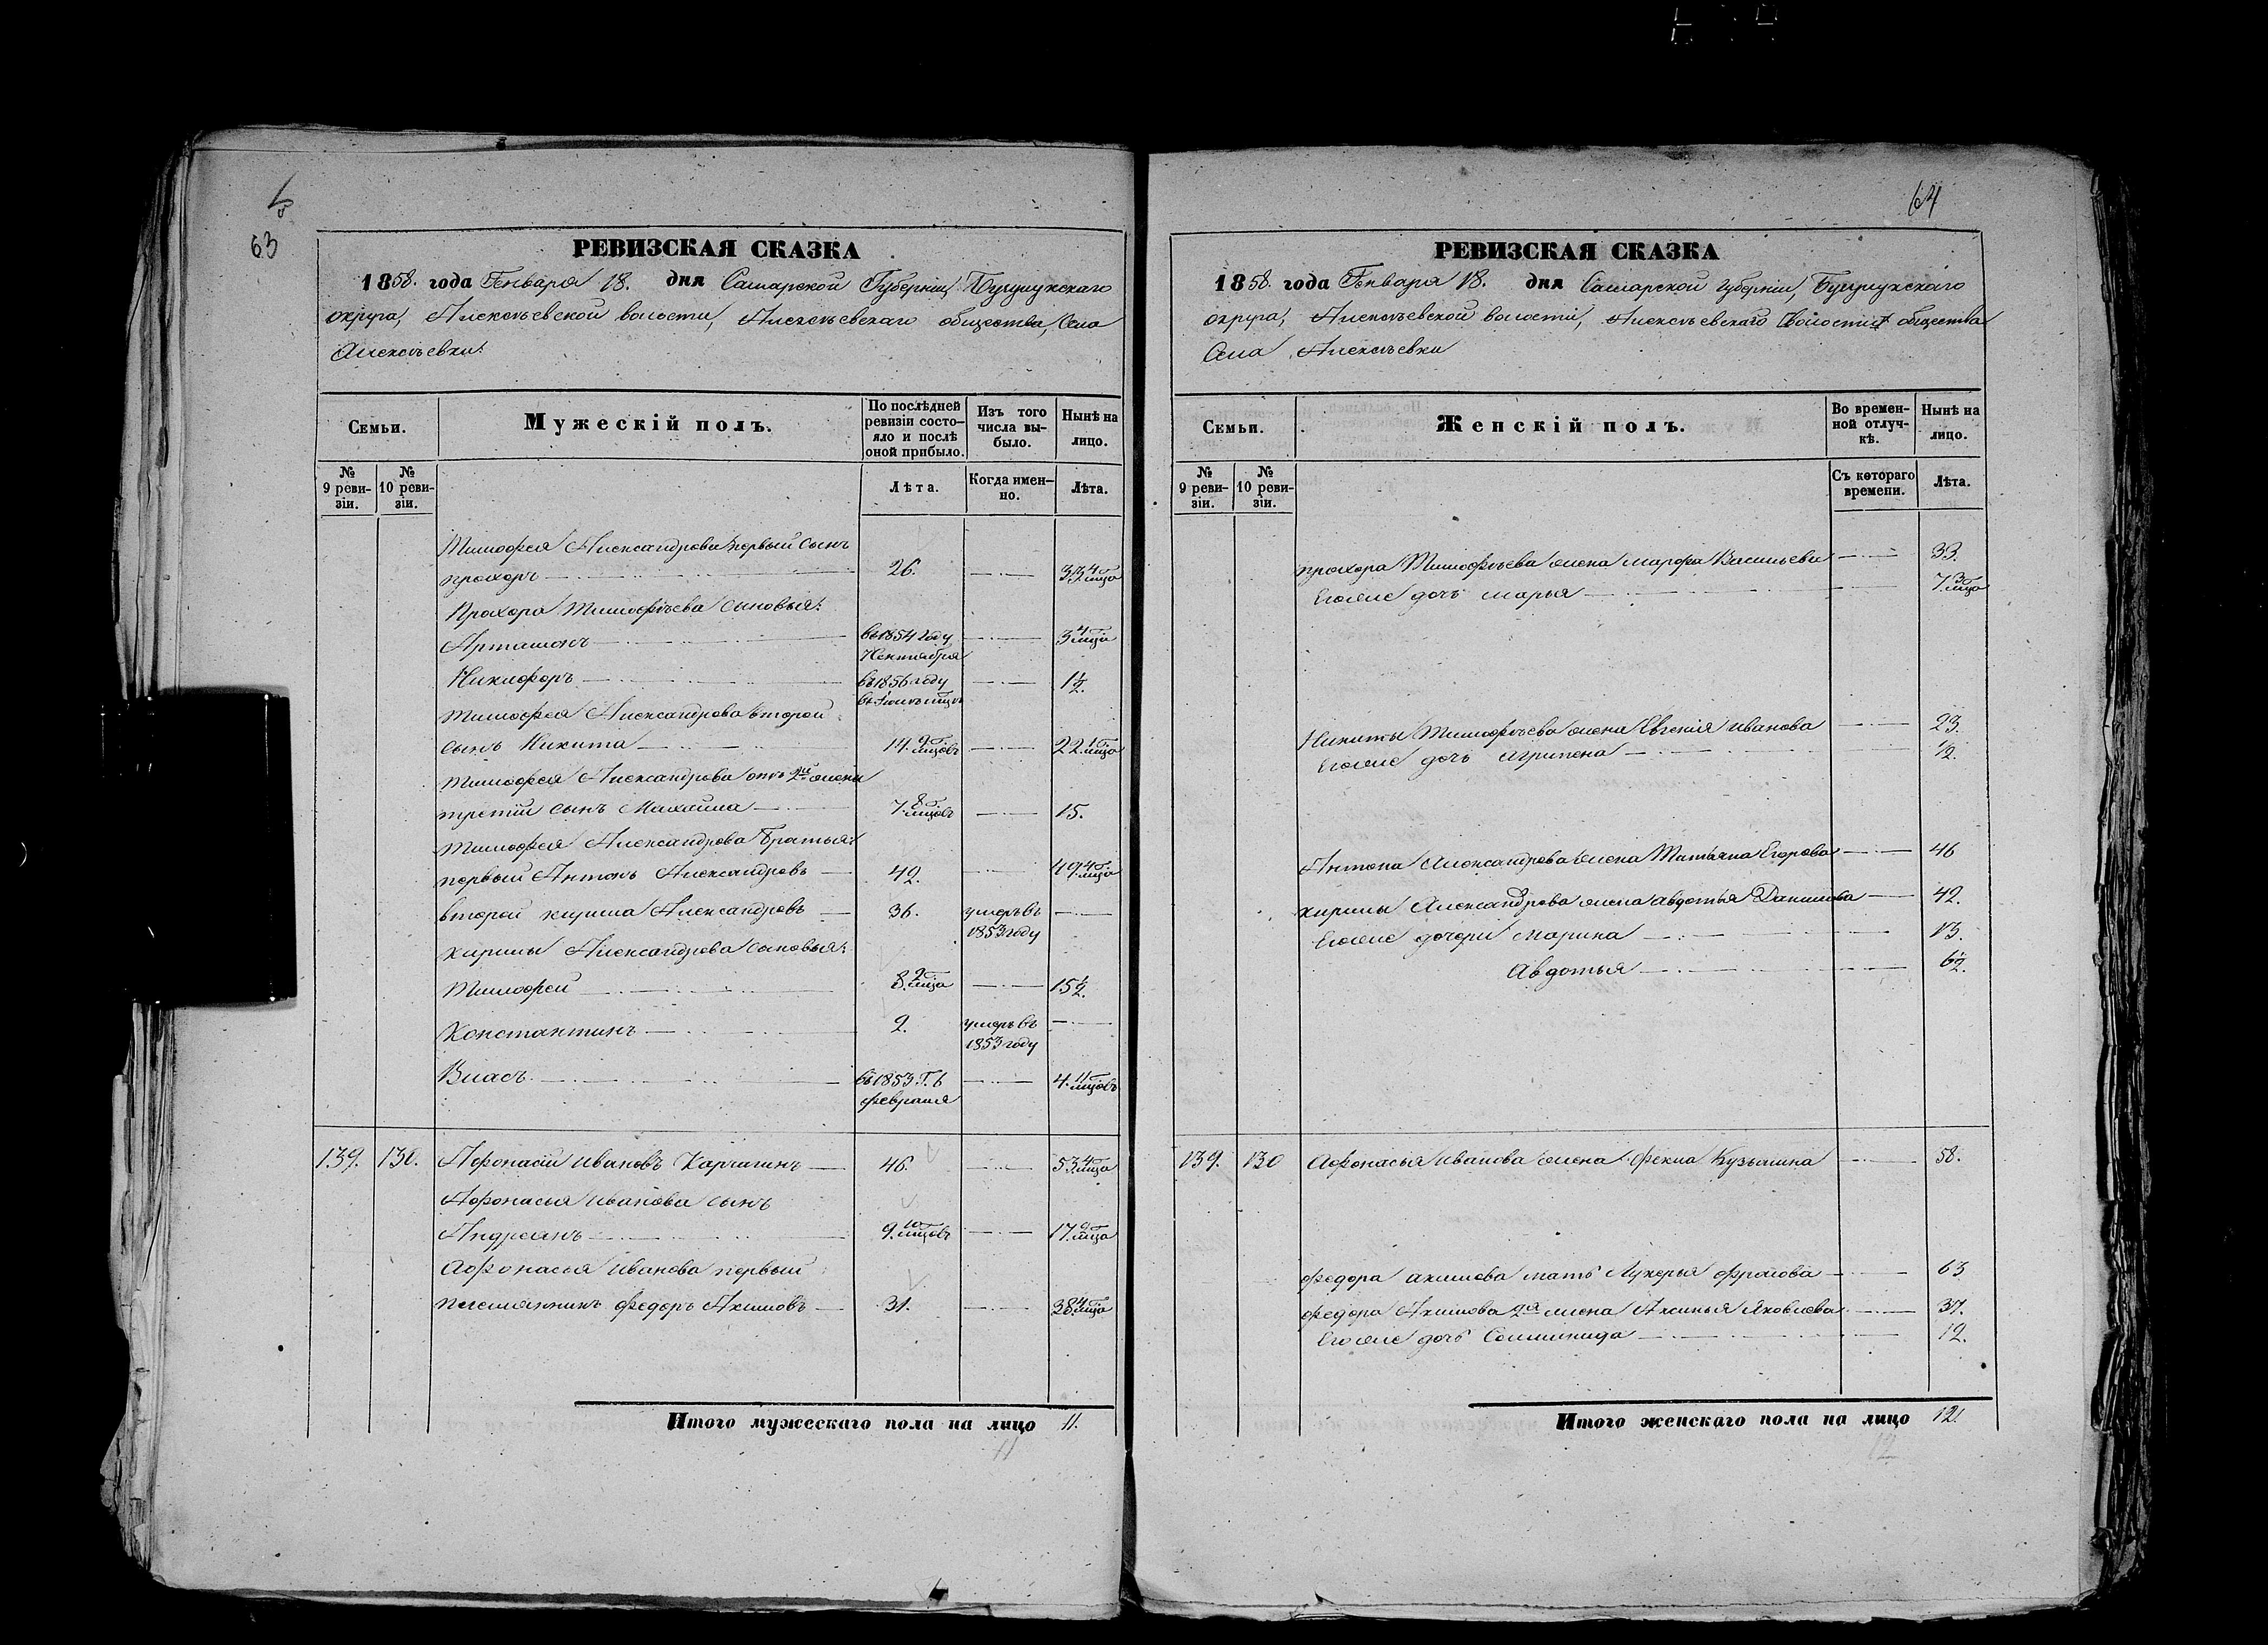 63
РЕВИЗСКАЯ СКАЗКА
1858. года Генваря 18. дня Самарской Губернии, Бузулукскаго
округа, Алексѣевской волости, Алексѣевскаго общества, Села
Алексѣевки.
Семьи.
Мужескій полъ.
По послѣдней ревизіи состо-
яло и послѣ
оной прибыло.
Изъ того
числа вы-
было.
Нынѣ на
лицо.
№
9 реви-
зіи.
№
10 реви-
зіи.
Лѣта.
Когда имен-
но.
Лѣта.
Тимофея Александрова первый сынъ
прохоръ 26. 33. 4 мѣца
Прохора Тимофѣева сыновья:
Артамонъ въ 1854 году 3 4 мѣца
7 Сентября
Никифоръ въ 1856 году 1 1/2.
Тимофея Александрова второй
сынъ Никита 14. 9 мѣцовъ 22. 1 мѣца
Тимофея Александрова отъ 2й жены
третій сынъ Михайла 7. 8 мѣцовъ 15.
Тимофея Александрова братья:
первый Антонъ Александровъ 42. 49. 4 мѣца
второй кирила Александровъ 36. умеръ въ
1853 году
кирилы Александрова сыновья:
Тимофей 8. 2 мѣца 15 1/2.
Константинъ 2. умеръ въ
1853 году
Власъ въ 1853 г. 6 4. 11 мѣцовъ
февраля
139. 130. Афонасій Ивановъ Карчагинъ 46. 53. 4 мѣца
Афонасья Иванова сынъ
Андреянъ 9. 10 мѣцовъ 17. 2 мѣца
Афонасья Иванова первый
племянникъ федоръ Акимовъ 31. 38. 4 мѣца
Итого мужескаго пола на лицо 11.
11
64
РЕВИЗСКАЯ СКАЗКА
1858. года Генваря 18. дня Самарской губерніи, Бузулукскаго
округа, Алексѣевской волости, Алексѣевскаго волости общества
Села Алексѣевки
Семьи.
Женскій полъ.
Во времен-
ной отлуч-
кѣ.
Нынѣ на
лицо.
№
9 реви-
зіи.
№
10 реви-
зіи.
Съ котораго
времени.
Лѣта.
прохора Тимофѣева жена марфа Васильева 33.
Егоже дочь марья 7. 3 мѣца
Никиты Тимофѣева жена Евгенія иванова 23.
Егоже дочь агрипена 1/2.
Антона Александрова жена Татьяна Егорова 46
кирилы Александрова жена авдотья Данилова 42.
Егоже дочери Марина 13.
Авдотья 6 1/2.
139. 130 Афонасья Иванова жена фекла Кузьмина 58.
федора акимова мать Лукерья фролова 63
федора Акимова 2я жена Аксинья Яковлева 37.
Егоже дочь Соломинида 12.
Итого женскаго пола на лицо 12.
12